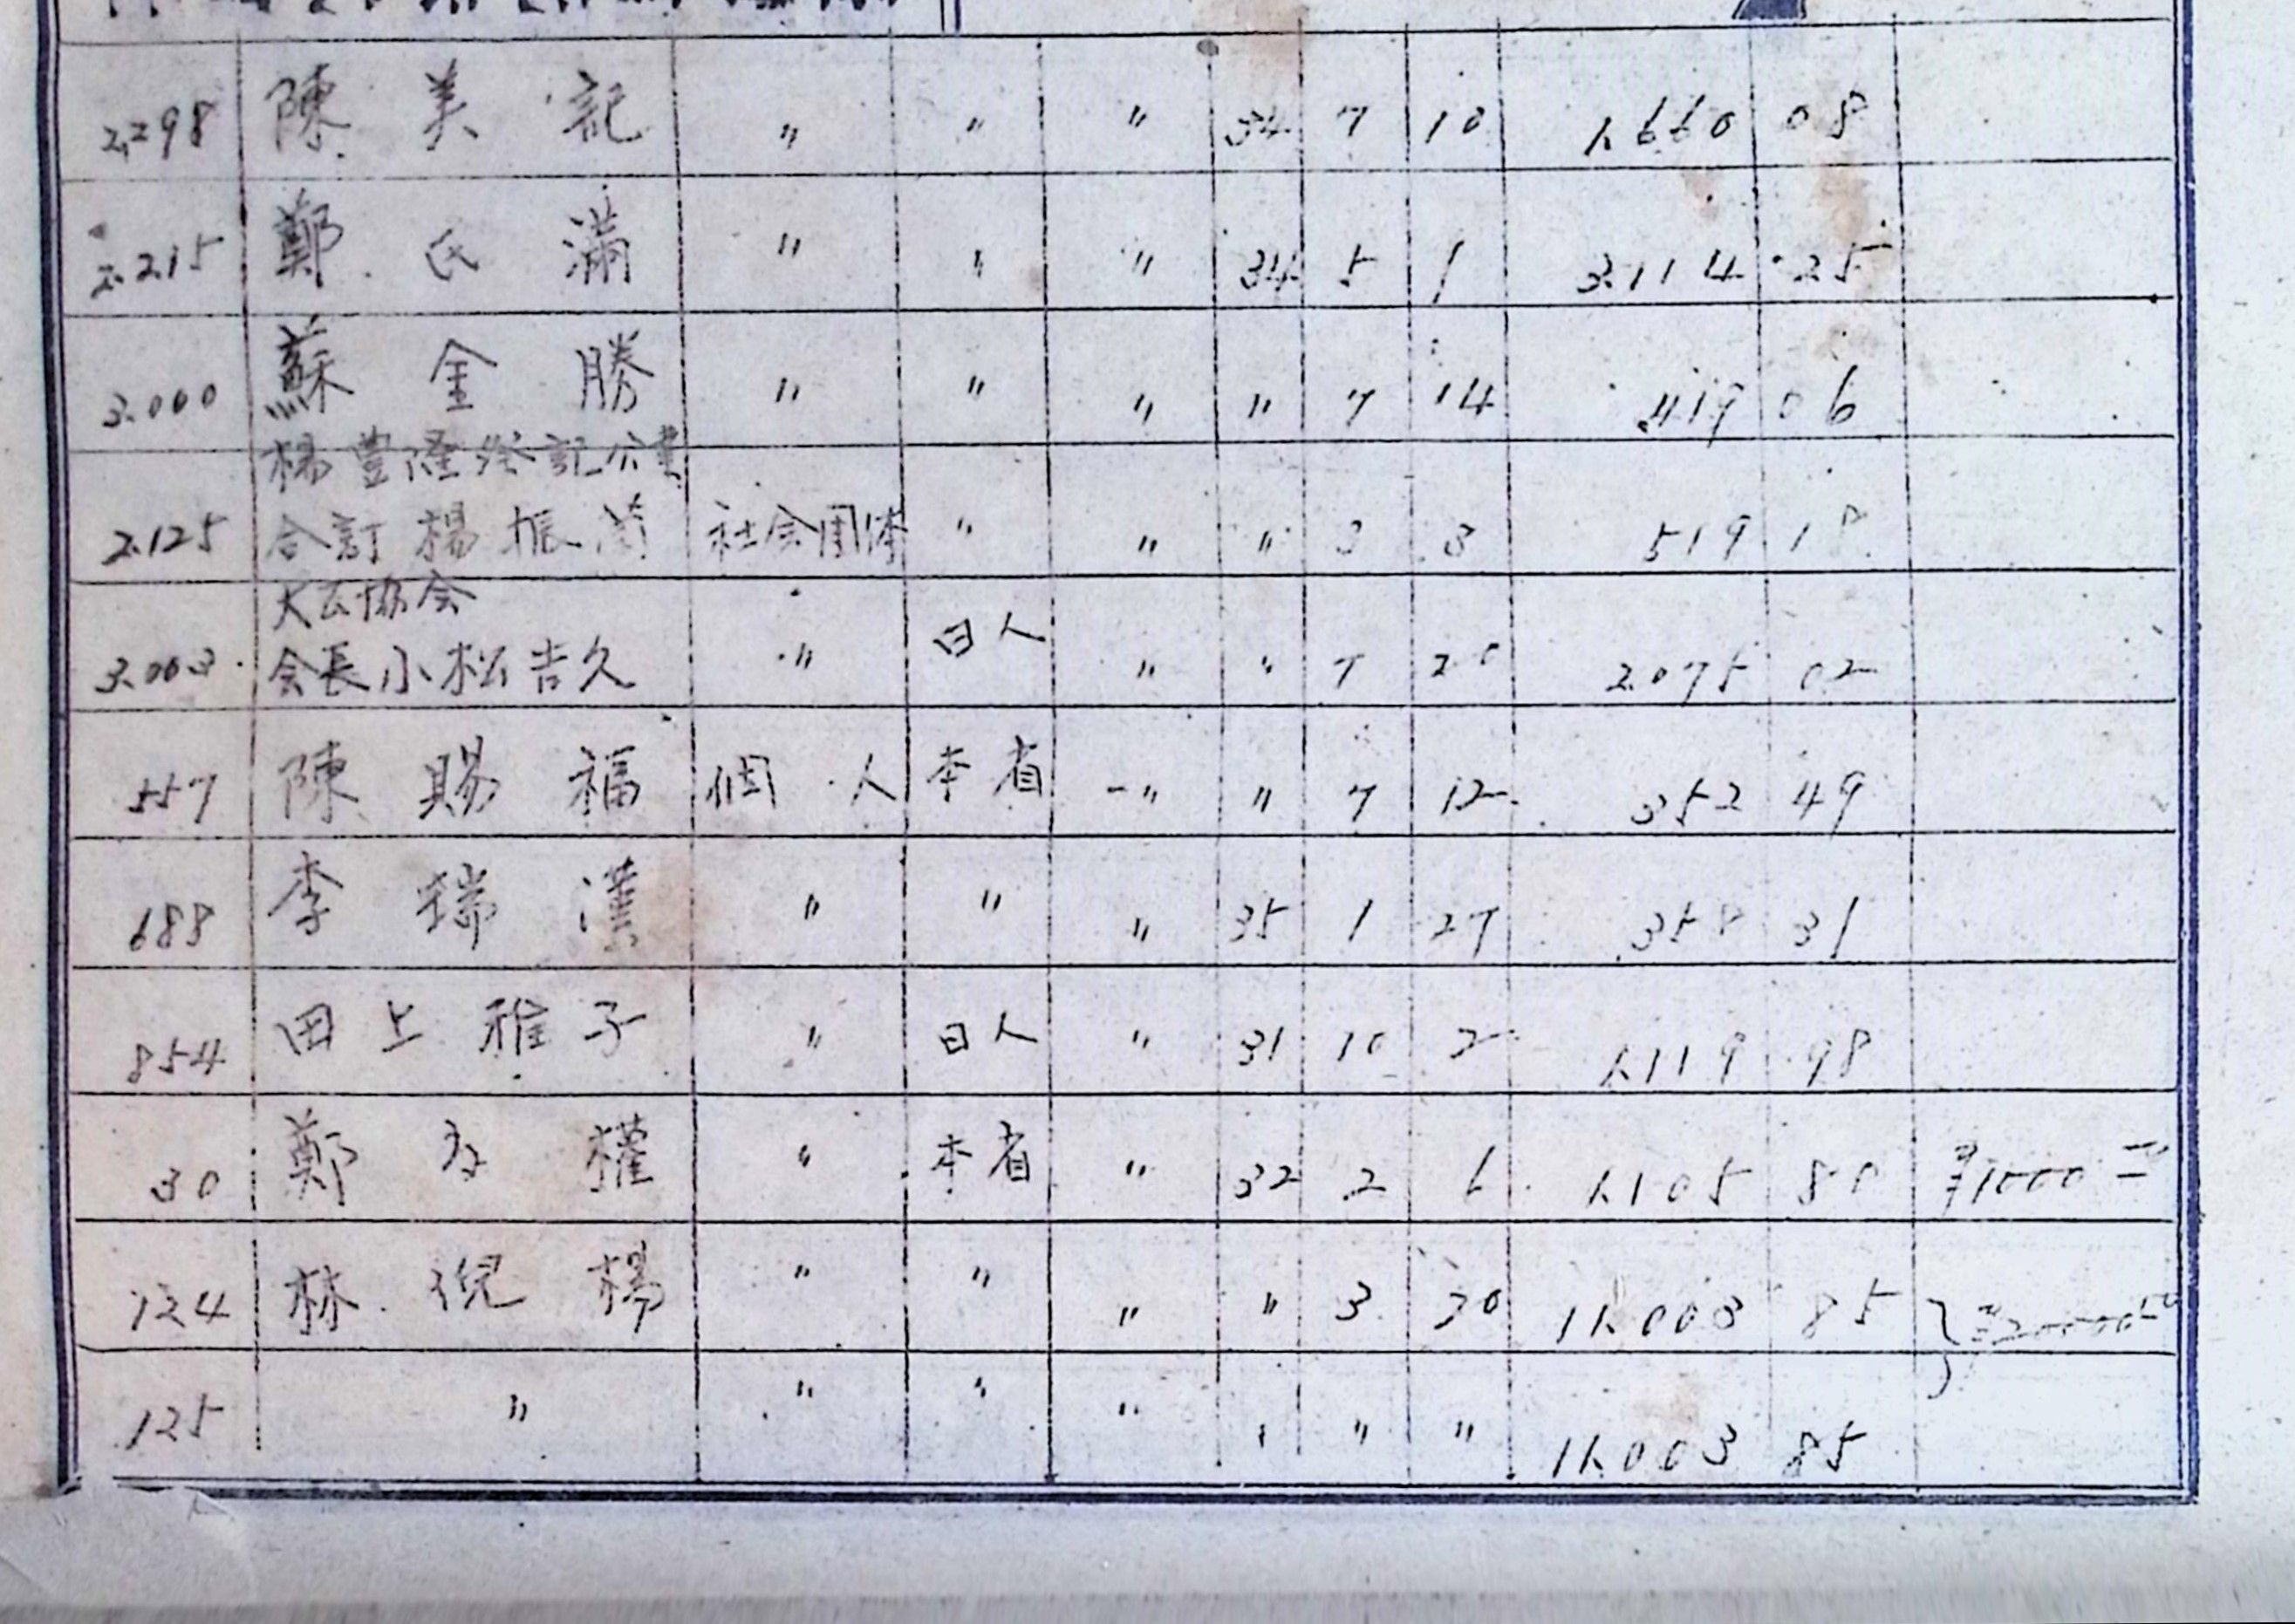 2,298 陳美記 〃 〃 〃 34 7 10 1.660 08
2.215 鄭氏滿 〃 〃 〃 34 5 1 3.114 25
3.000 蘇金勝 〃 〃 〃 〃 7 14 419 06
楊豐隆 記公業
2.125 合訂楊振 社会团体 〃 〃 〃 3 3 519 18
大公協会
3.003 会長小松吉久 〃 日人 〃 〃 7 20 2.075 02
557 陳賜福 個人 本省 〃 〃 7 12 352 49
688 李瑞漢 〃 〃 〃 35 1 27 358 31
854 田上雅子 〃 日人 〃 31 10 2 1.119 98
30 鄭 權 〃 本省 〃 32 2 6 1.105 80 1000
124 林倪楊 〃 〃 〃 〃 3 30 11.003 85
125 〃 〃 〃 〃 〃 〃 〃 11.003 85